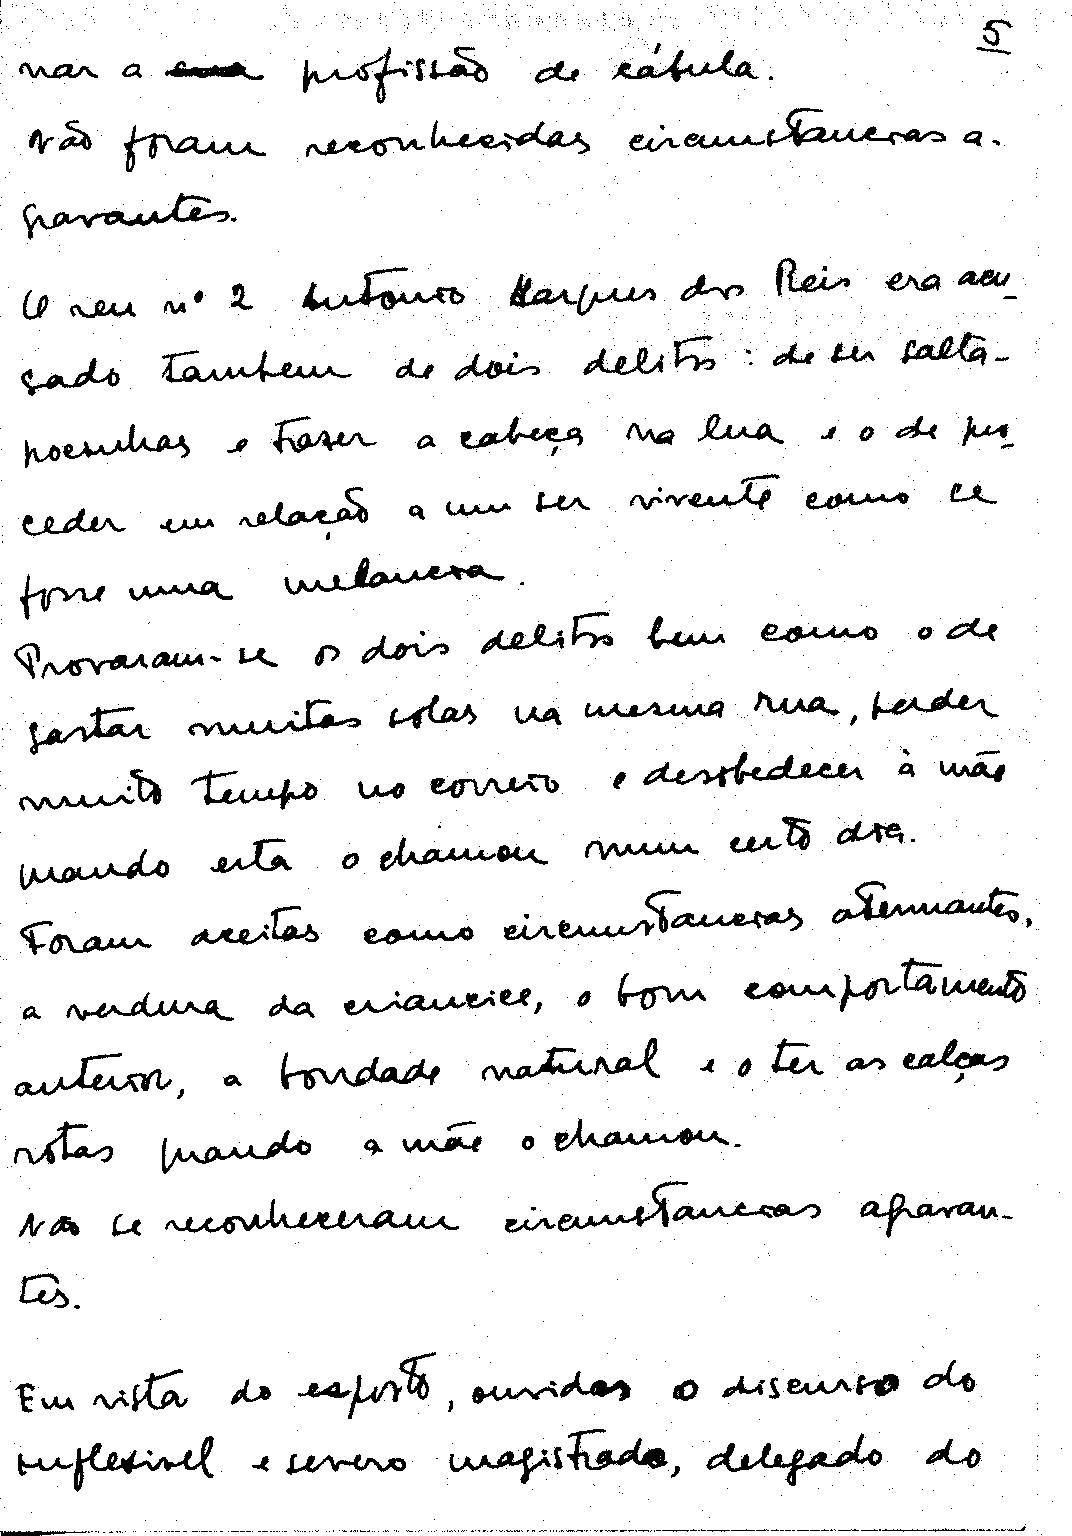 5
nar a sua profissão de cábula.
Não foram reconhecidas circumstancias a-
gravantes.
O reu nº 2 Antonio Marques dos Reis era acu-
sado tambem de dois delitos : de ser salta-
pocinhas e trazer a cabeça na lua e o de pro-
ceder em relação a um ser vivente como se
fosse uma melancia.
Provaram-se os dois delitos bem como o de
gastar muitas solas na mesma rua, perder
muito tempo no correio e desobedecer à mãe
quando esta o chamou num certo dia.
Foram aceitas como circumstancias atenuantes,
a verdura da criancice, o bom comportamento
anterior, a bondade natural e o ter as calças
rotas quando a mãe o chamou.
Não se reconheceram circumstancias agravan-
tes.
Em vista do exposto, ouvidos o discurso do
inflexivel e severo magistrado, delegado do